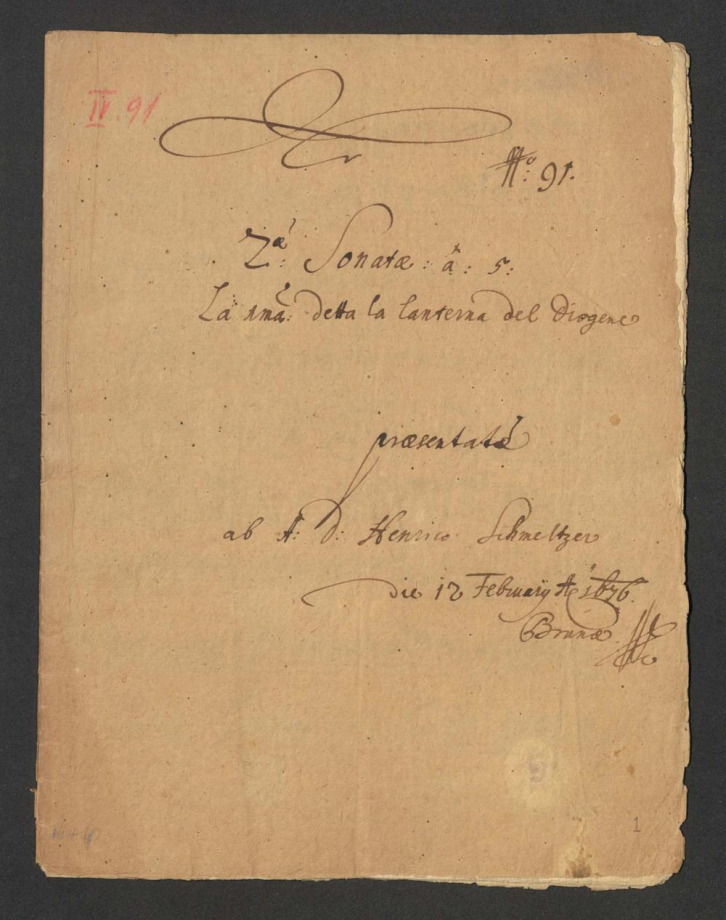 IV. 91
No: 91.
2æ: Sonatæ: â: 5:
La 1ma: detta la lanterna del Diogene
præsentatæ
ab A: D: Henrico Schmeltzer
die 12 Februarÿ Ao 1676.
Brunæ
1